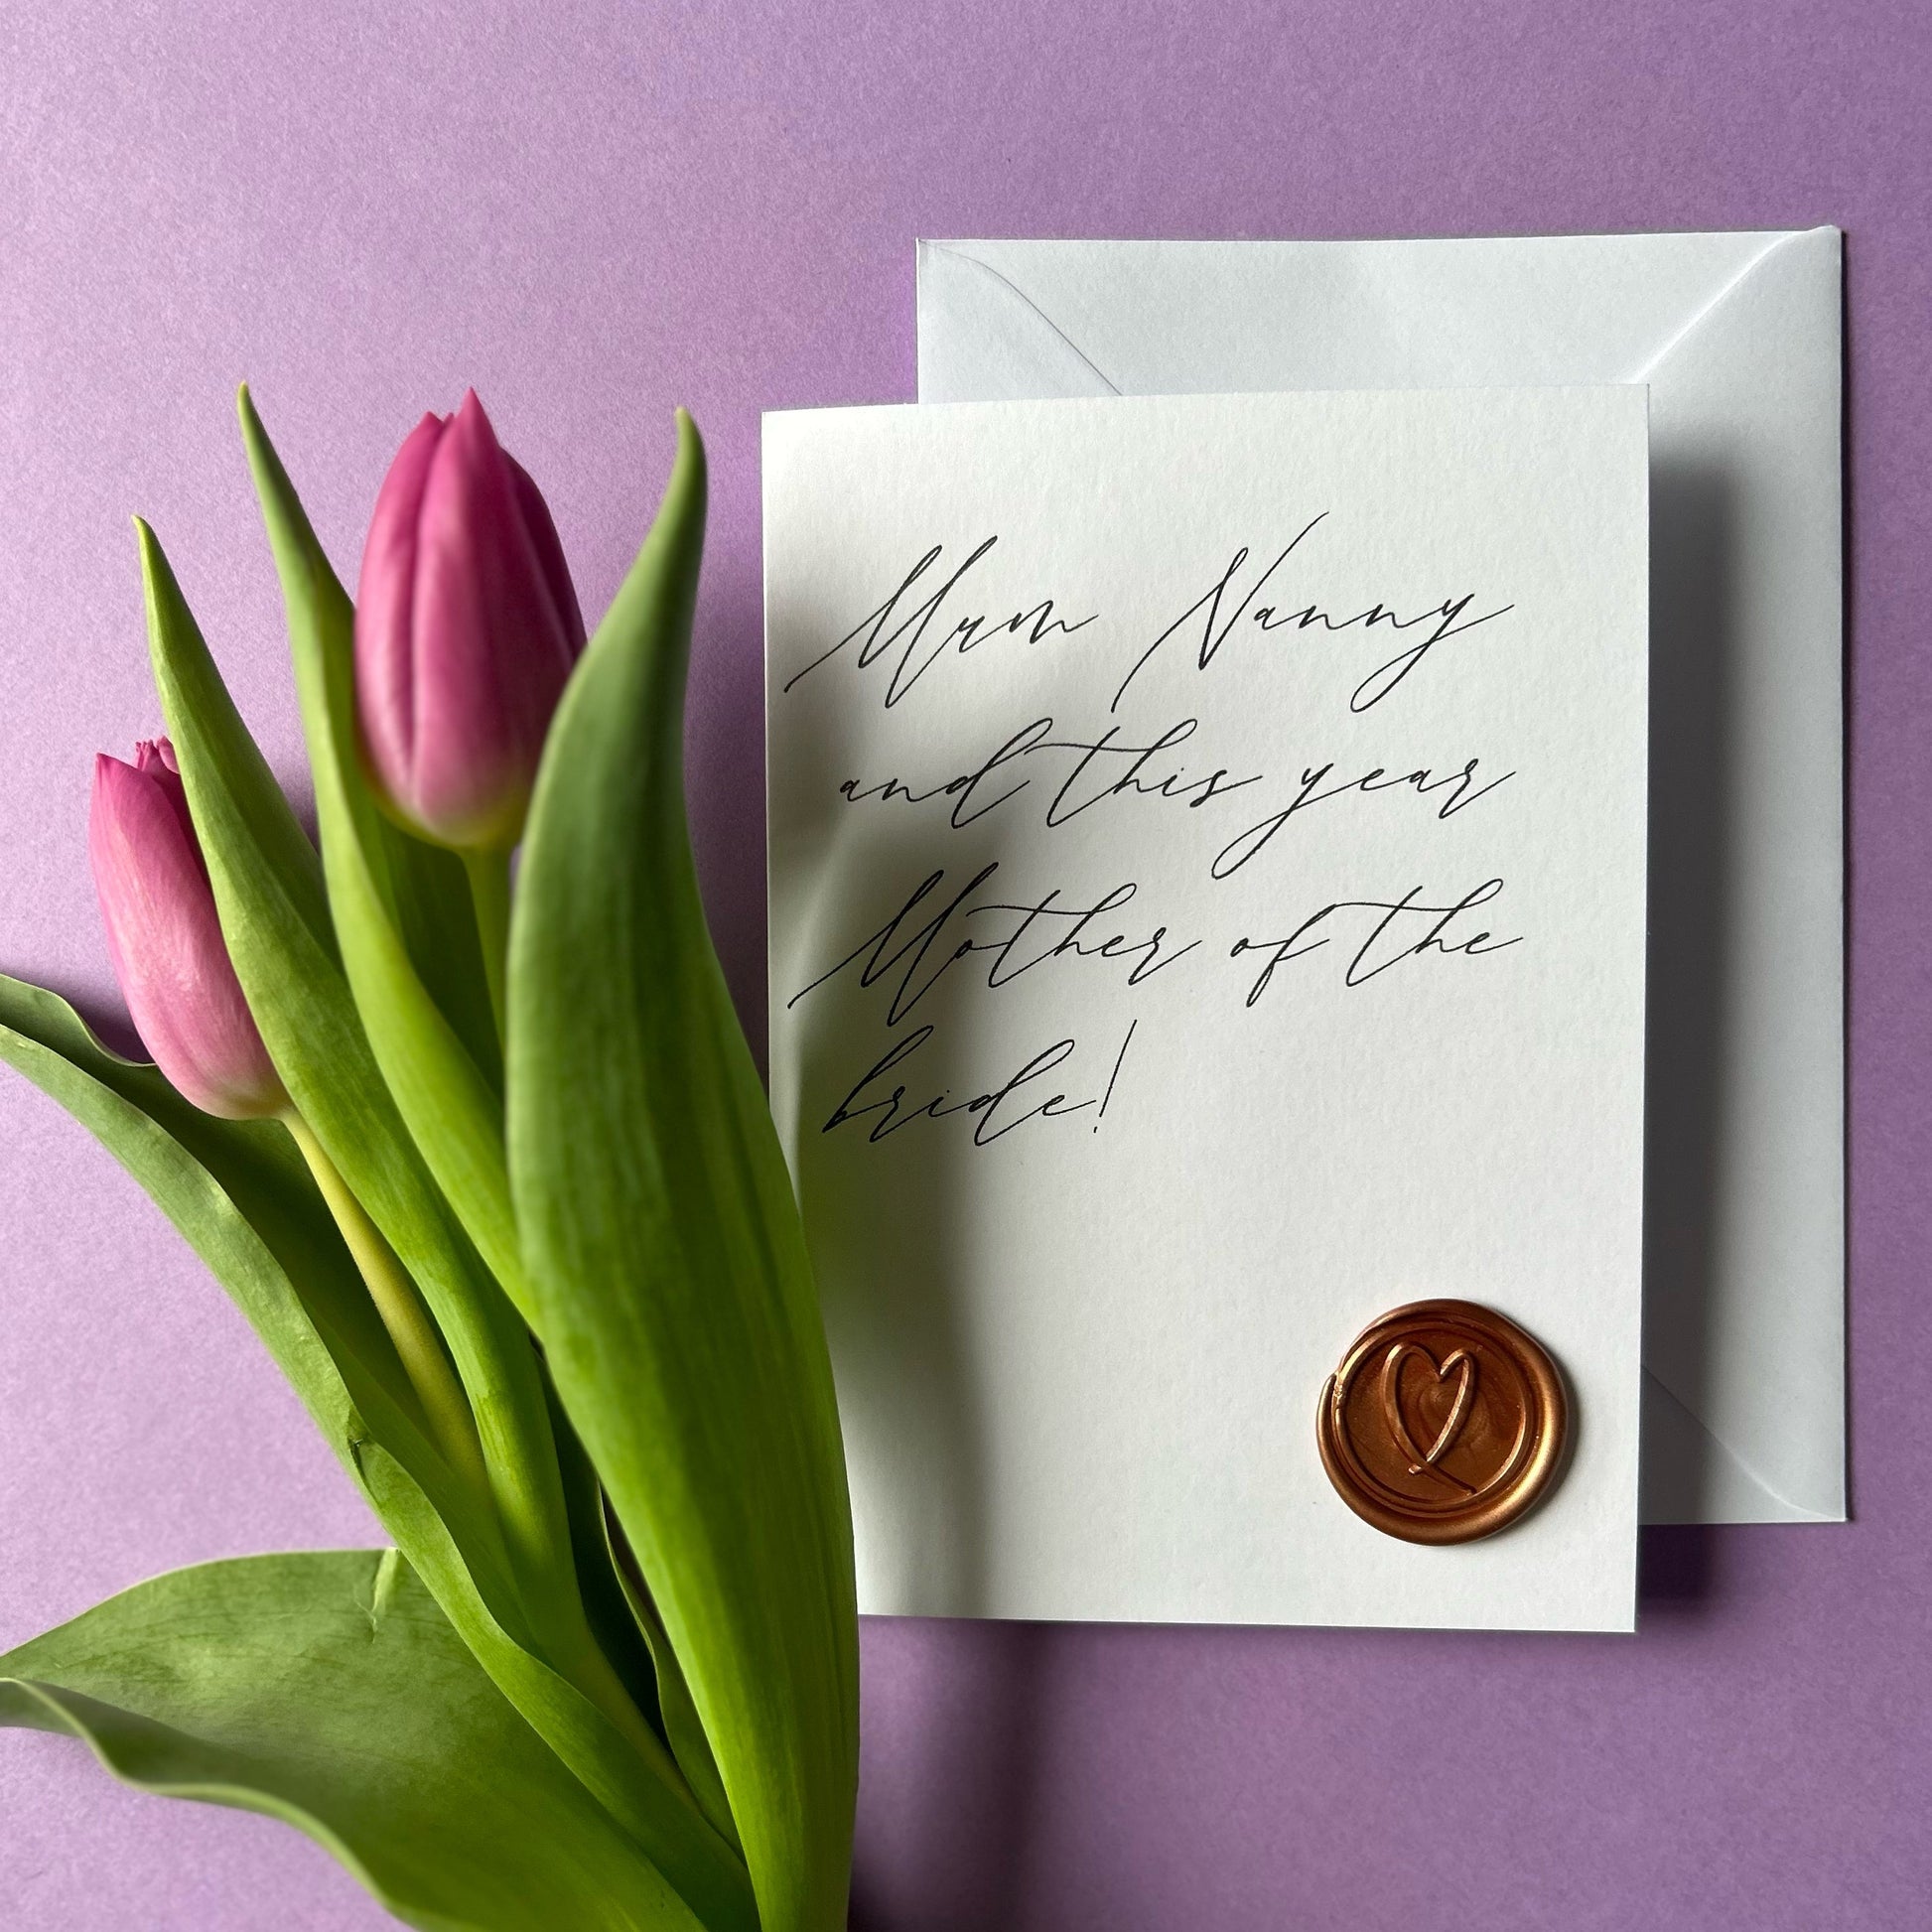 Mum Nanny
and this year
Mother of the
bride!